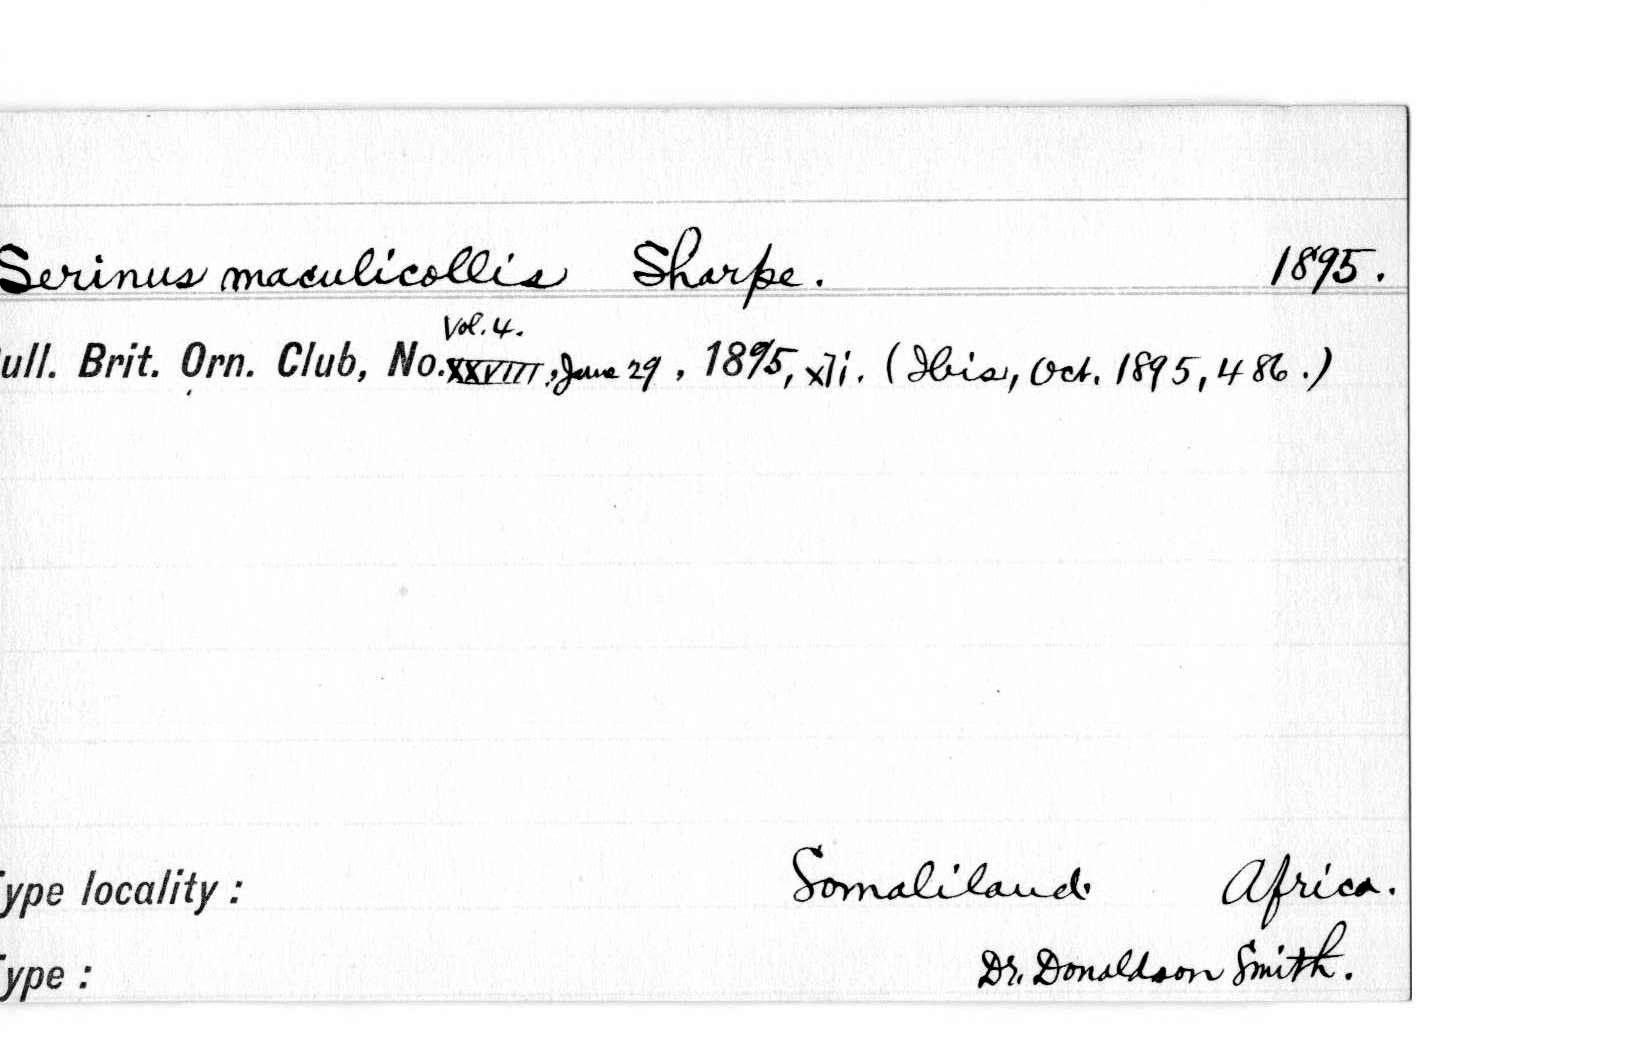 Serinus maculicollis Sharpe. 1895.
Vol. 4.
ull. Brit. Orn. Club, No. XXVIII, June 29, 1895, xli. (Ibis, Oct. 1895, 486.)
ype locality: Somaliland Africa.
ype: Dr. Donaldson Smith.